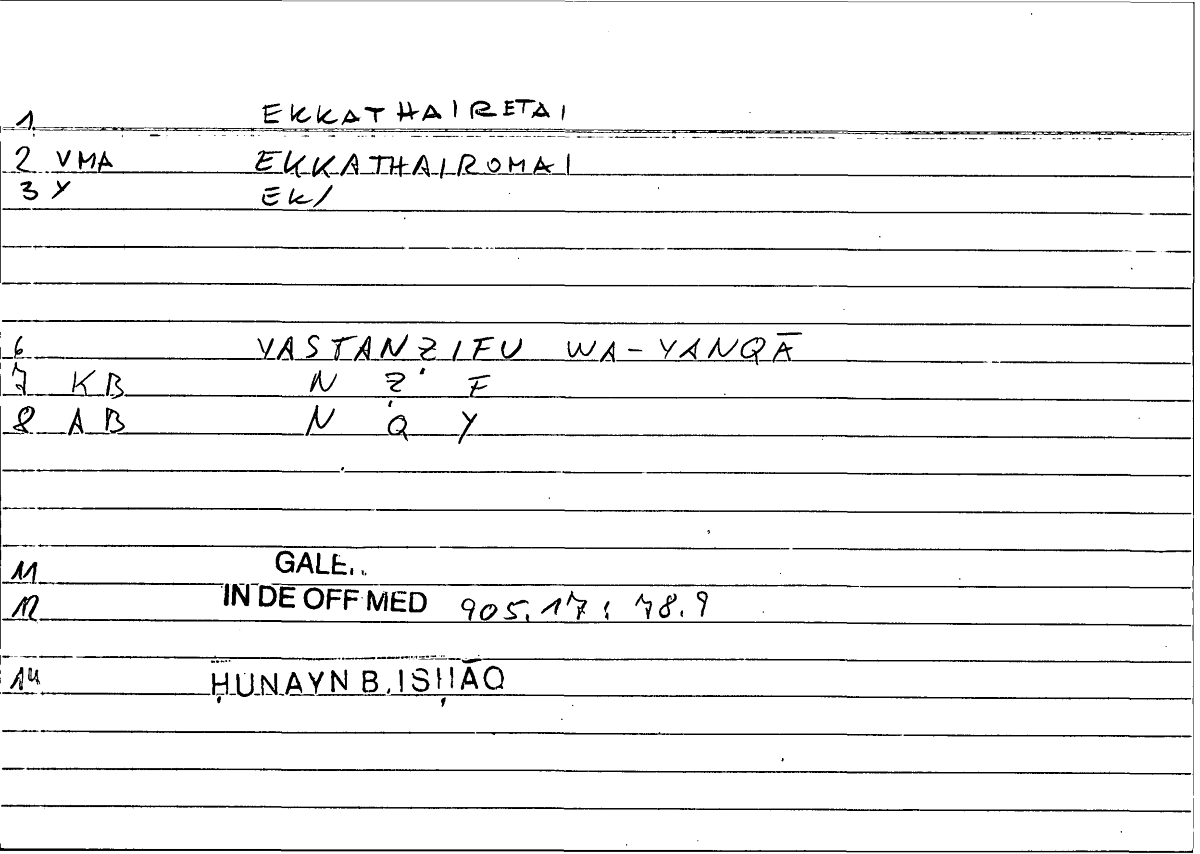 1 EKKATHAIRETAI
2 VMA EKKATHAIROMAI
3 Y EK/
6 YASTANẒIFU WA-YANQĀ
7 KB N Ẓ F
8 AB N Q Y
11 GALE..
12 IN DE OFF MED 905.17 : 78.9
14 ḤUNAYN B. ISḤĀQ